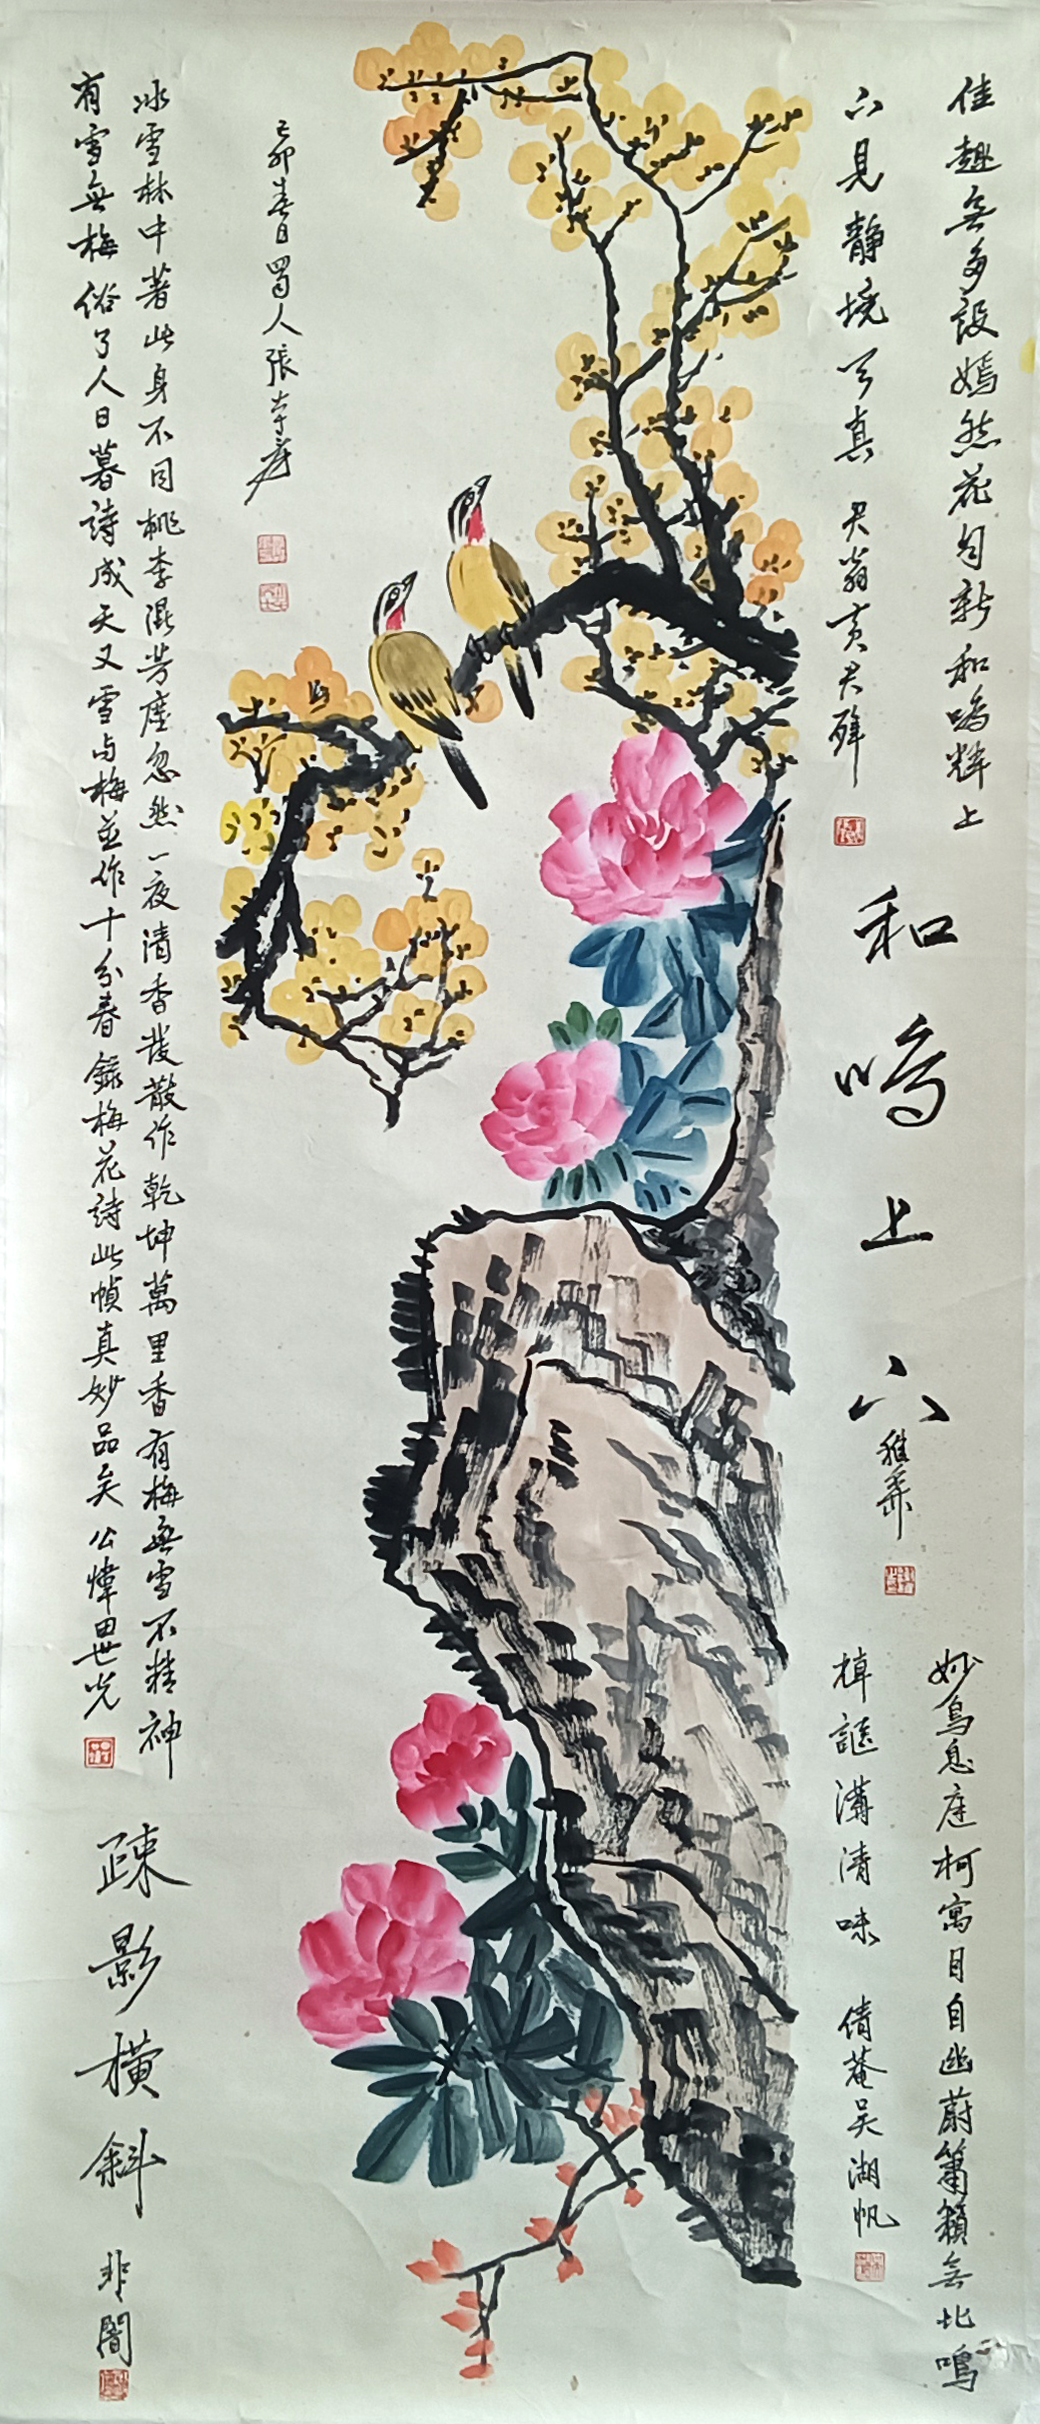 佳趣無多設嫣然花自新和鳴粹上
下見静境可真 君翁黄君璧
和
鳴
上
下
雅弄
妙鳥息庭柯寓目自幽蔚簫籟無比鳴
棹謳溝清味 倩菴吴湖帆
己卯春日蜀人張大千
冰雪林中著此身不同桃李混芳塵忽然一夜清香發散作乾坤萬里香有梅無雪不精神
有雪無梅俗了人日暮詩成天又雪与梅並作十分春錄梅花詩此幀真妙品矣 公煒田世光
疎影橫斜 非闇